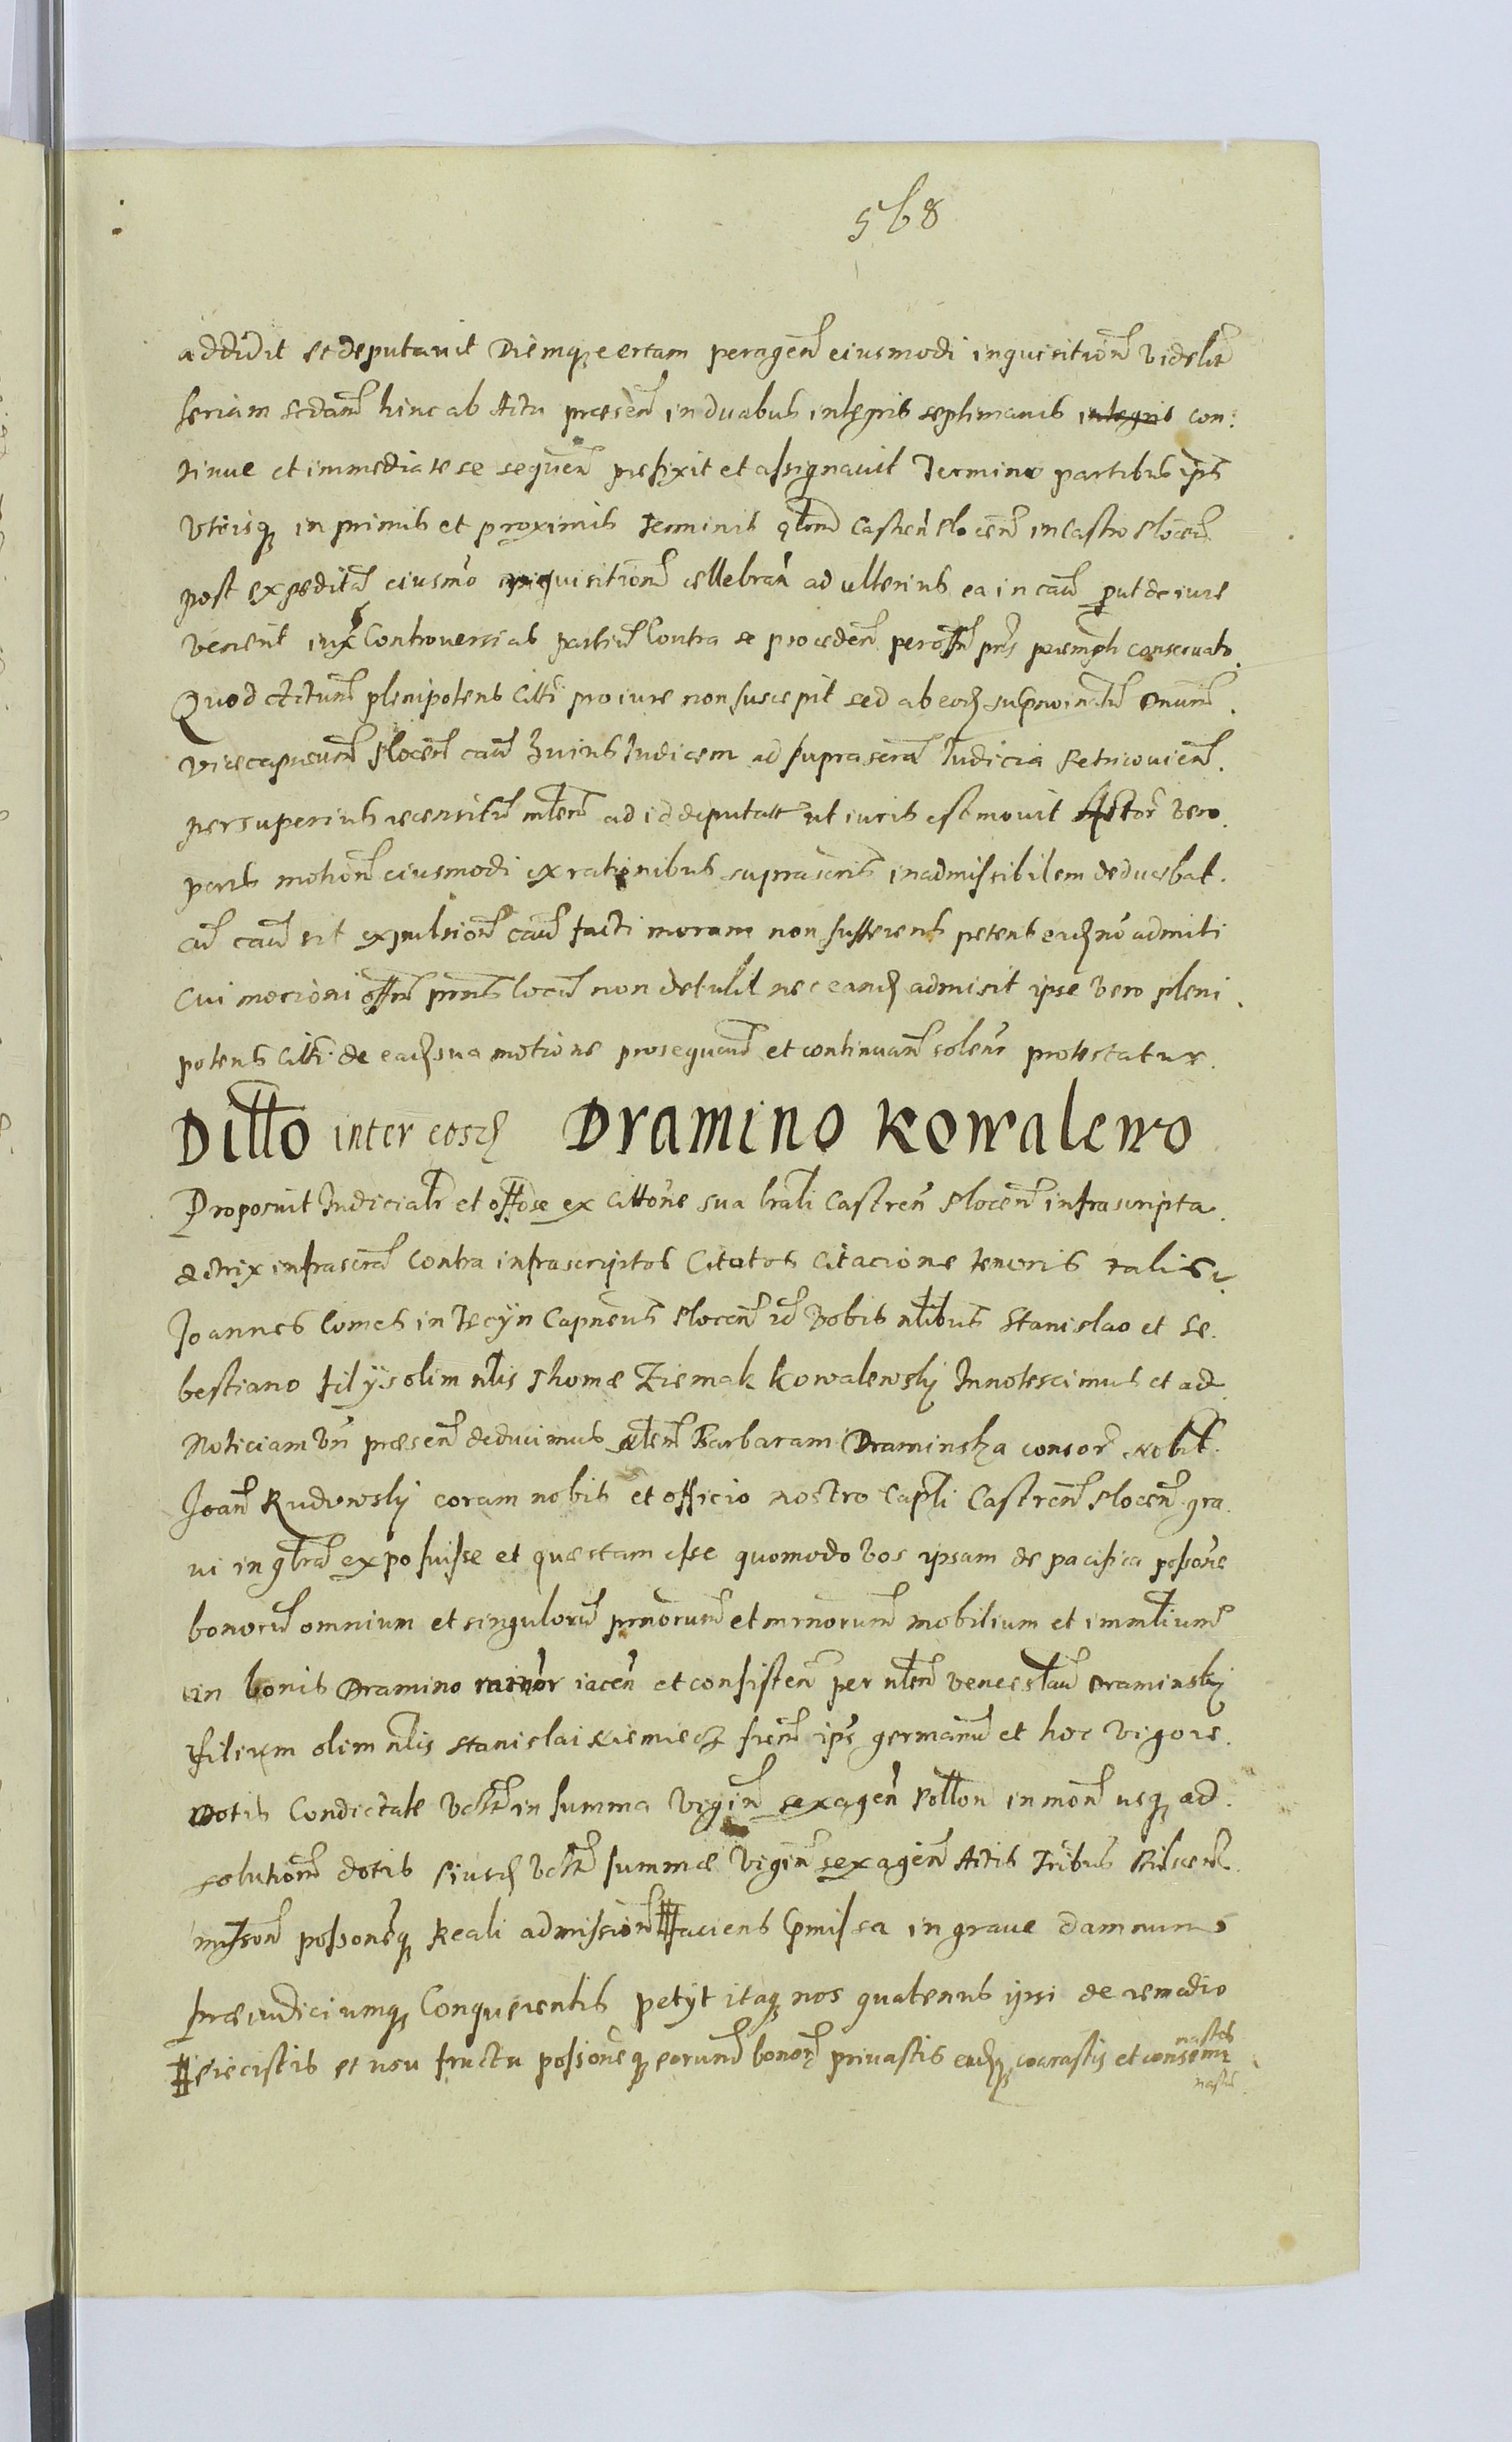 568
addidit et deputavit Diemq, certam peragen eiusmodi inquisition videlit
feriam secdam hinc ab Actu præsen in duabus integris septimanis integris con:
tinue et immediate se sequen præfixit et assignavit Termino partibus ips
Utrisq, in primis et proximis Terminis qlom Castren Plocen in Castro Plocen
post expedita eiusmo inquisition cellebran ad ulterius ea in cau put de iure
venerit iux Controversias partiu Contra se proceden per offm pns peremph conservato
Quod Actum plenipotens Citti pro iure non suscepit sed ab eod
vicecapneum Plocen cau huius Iudicem ad suprascra Iudicia Petricovien
per superius recensitu mlem ad id deputatt ut iuris est movit Actor vero
pars motion eiusmodi ex rationibus suprascris inadmissibilem deducebat.
cu cau sit expulsion cau facti moram non sufferens petens eads no admiti
Cui mocioni offm prns locu non detulit nec eands admisit ipse vero pleni
potens Citti de eads sua motione prosequen et continuan solenr protestatur.
Ditto inter eosd Dramino Kowalewo
Proposuit Iudicialr et offose ex Cittone sua lrali Castren Plocen infrascripta
actrix infrascra Contra infrascriptos Citatos Citacione tenoris talis
Joannes Comes in Tecyn Capneus Plocen id Vobis nlibus Stanislao et Se
bestiano filys olim nlis Thomæ Ziemak Kowalewsky Innotescimus et ad
Noticiam vri præsen deducimus nlem Barbaram Draminska consor Nobil
Joan Rudowsky coram nobis et officio nostro Capli Castren Plocen gra
vi in qlra exposuisse et quæstam esse quomodo vos ipsam de pacifica possone
bonoru omnium et singuloru prnorum et mrnorum mobilium et immlium
in bonis Dramino iacen et consisten per nlem Vencesslau Draminsky
filium olim nlis Stanislai frem ips germanu et hoc vigore
Dotis Condictate in summa Vigin sexagen Polton in mon usq, ad
solution dotis Eiusd summæ Vigin sexagen Actis Tribus
misson possoneq, Reali admission # faciens pmissa in grave damnum
præiudiciumq, Conquerentis petyt itaq, nos quatenus ipsi de remedio
# Eiecistis et usu fructu possoneq, eorund bonor privastis eadq, coarastis et consemi
nastis